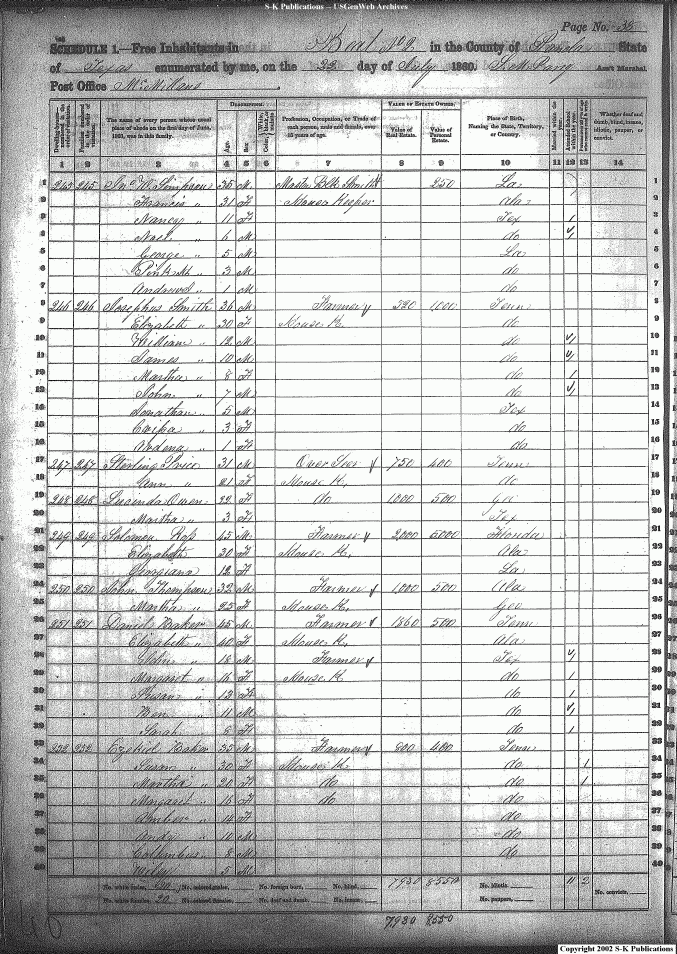 S-K Publications -- USGenWeb Archives
Page No. 35
SCHEDULE 1.—Free Inhabitants in Beat No 2 in the County of Panola State
of Texas enumerated by me, on the 23 day of July 1860. Ass't Marshal.
Post Office McMillans
Dwelling-houses numbered in the order of visitation.
Families numbered in the order of visitation.
The name of every person whose usual place of abode on the first day of June, 1860, was in this family.
DESCRIPTION.
Age.
Sex.
Profession, Occupation, or Trade of each person, male and female, over 15 years of age.
VALUE OF ESTATE OWNED.
Value of Real Estate.
Value of Personal Estate.
Place of Birth, Naming the State, Territory, or Country.
Married within the year.
Attended School within the year.
Whether deaf and dumb, blind, insane, idiotic, pauper, or convict.
1 2 3 4 5 6 7 8 9 10 11 12 13 14
1 245 245 Jno W. Simpson 35 M Master Blk Smith 250 La 1
2 Francis " 31 F House Keeper Ala 2
3 Nancy " 11 F Tex 1 3
4 " 6 M do 1 4
5 George " 5 M La 5
6 Pink M " 3 M do 6
7 Andrew " 1 M do 7
8 246 246 Josephus Smith 36 M Farmer 320 1,000 Tenn 8
9 Elizabeth " 30 F House K. do 9
10 William " 12 M do 1 10
11 James " 10 M do 1 11
12 Martha " 8 F do 1 12
13 John " 7 M do 1 13
14 Jonathan " 5 M Tex 14
15 " 3 F do 15
16 Ardena " 1 F do 16
17 247 247 Sterling Price 31 M Over Seer 750 400 Tenn 17
18 Ann " 21 F House K. do 18
19 248 248 Lucinda Owen 22 F do 1000 500 Geo 19
20 Martha " 3 F Tex 20
21 249 249 Solomon Ross 45 M Farmer 2,000 5000 Florida 21
22 Elizabeth 30 F House K. Ala 22
23 Georgiana 12 F La 23
24 250 250 John Thompson 32 M Farmer 1,000 500 Ala 24
25 Martha " 25 F House K. Geo 25
26 251 251 David Baker 45 M Farmer 1860 500 Tenn 26
27 Elizabeth " 40 F House K. Ala 27
28 John " 18 M Farmer Tex 1 28
29 Margaret " 16 F House K do 1 29
30 Susan " 13 F do 1 30
31 Ben " 11 M do 1 31
32 Sarah " 8 F do 1 32
33 252 252 Ezekiel Baker 35 M Farmer 800 400 Tenn 33
34 Susan " 30 F House K do 1 34
35 Martha " 20 F do do 1 35
36 Margaret " 16 F do do 36
37 Amber " 14 F do 37
38 Andy " 10 M do 38
39 Collumbus " 8 M do 39
40 Wiley " 5 M 40
No. white males, 20 No. colored males, No. foreign born, No. blind, 7930 8550 No. idiotic, 11 2 No. convicts,
No. white females, 20 No. colored females, No. deaf and dumb, No. insane, No. paupers,
7930 8550
Copyright 2002 S-K Publications